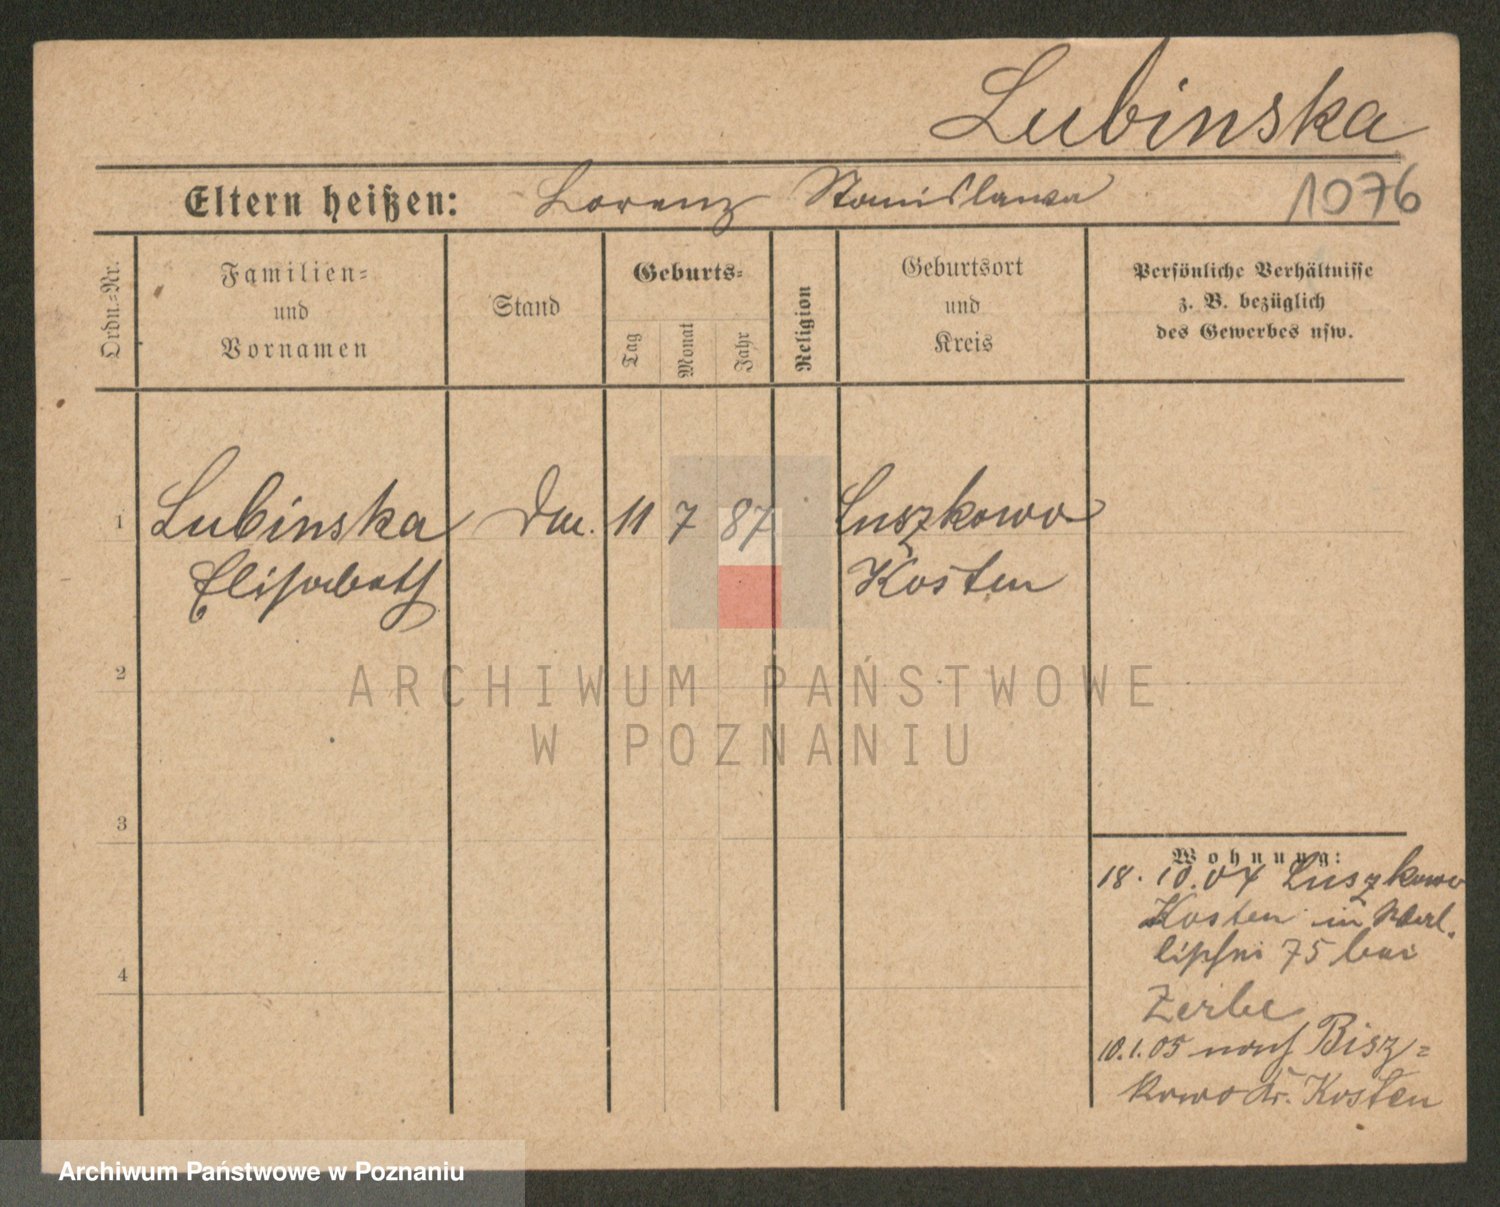 Lubinska
Eltern heißen: Lorenz Stanislawa 1076
Ordn.=Nr.
Familien=
und
Vornamen
Stand
Geburts=
Tag
Monat
Jahr
Religion
Geburtsort
und
Kreis
Persönliche Verhältnisse
z. B. bezüglich
des Gewerbes usw.
1 Lubinska 11 7 87 Luszkowo
Elisabeth Kosten
2
ARCHIWUM PAŃSTWOWE
W POZNANIU
3
4
Wohnung:
18. 10. 04 Luszkowo
Kosten in
75 bei
Zerbe
10.1.05 nach Bisz=
kowo Kr. Kosten
Archiwum Państwowe w Poznaniu